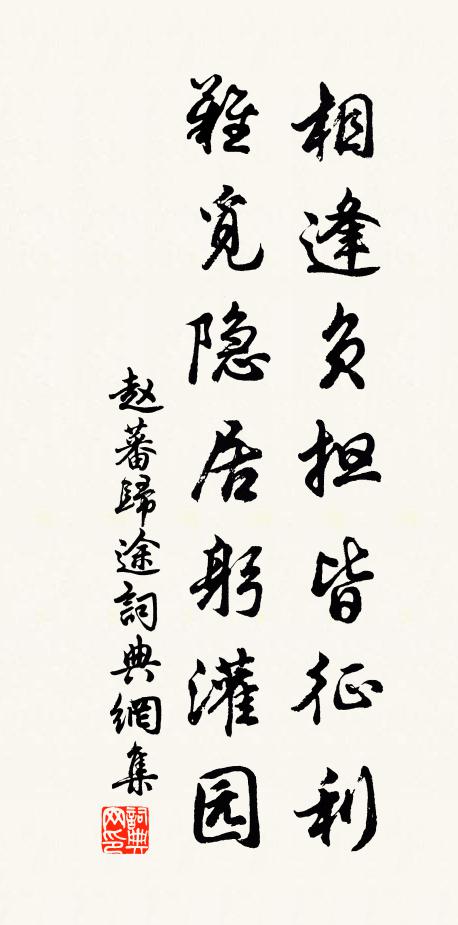 相逢负担皆征利
难觅隐居躬灌园
赵蕃歸途詞典網集
詞典网印